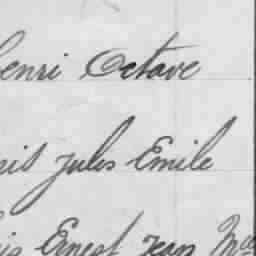 Henri Octave
Jules Emile
Ernest Jean